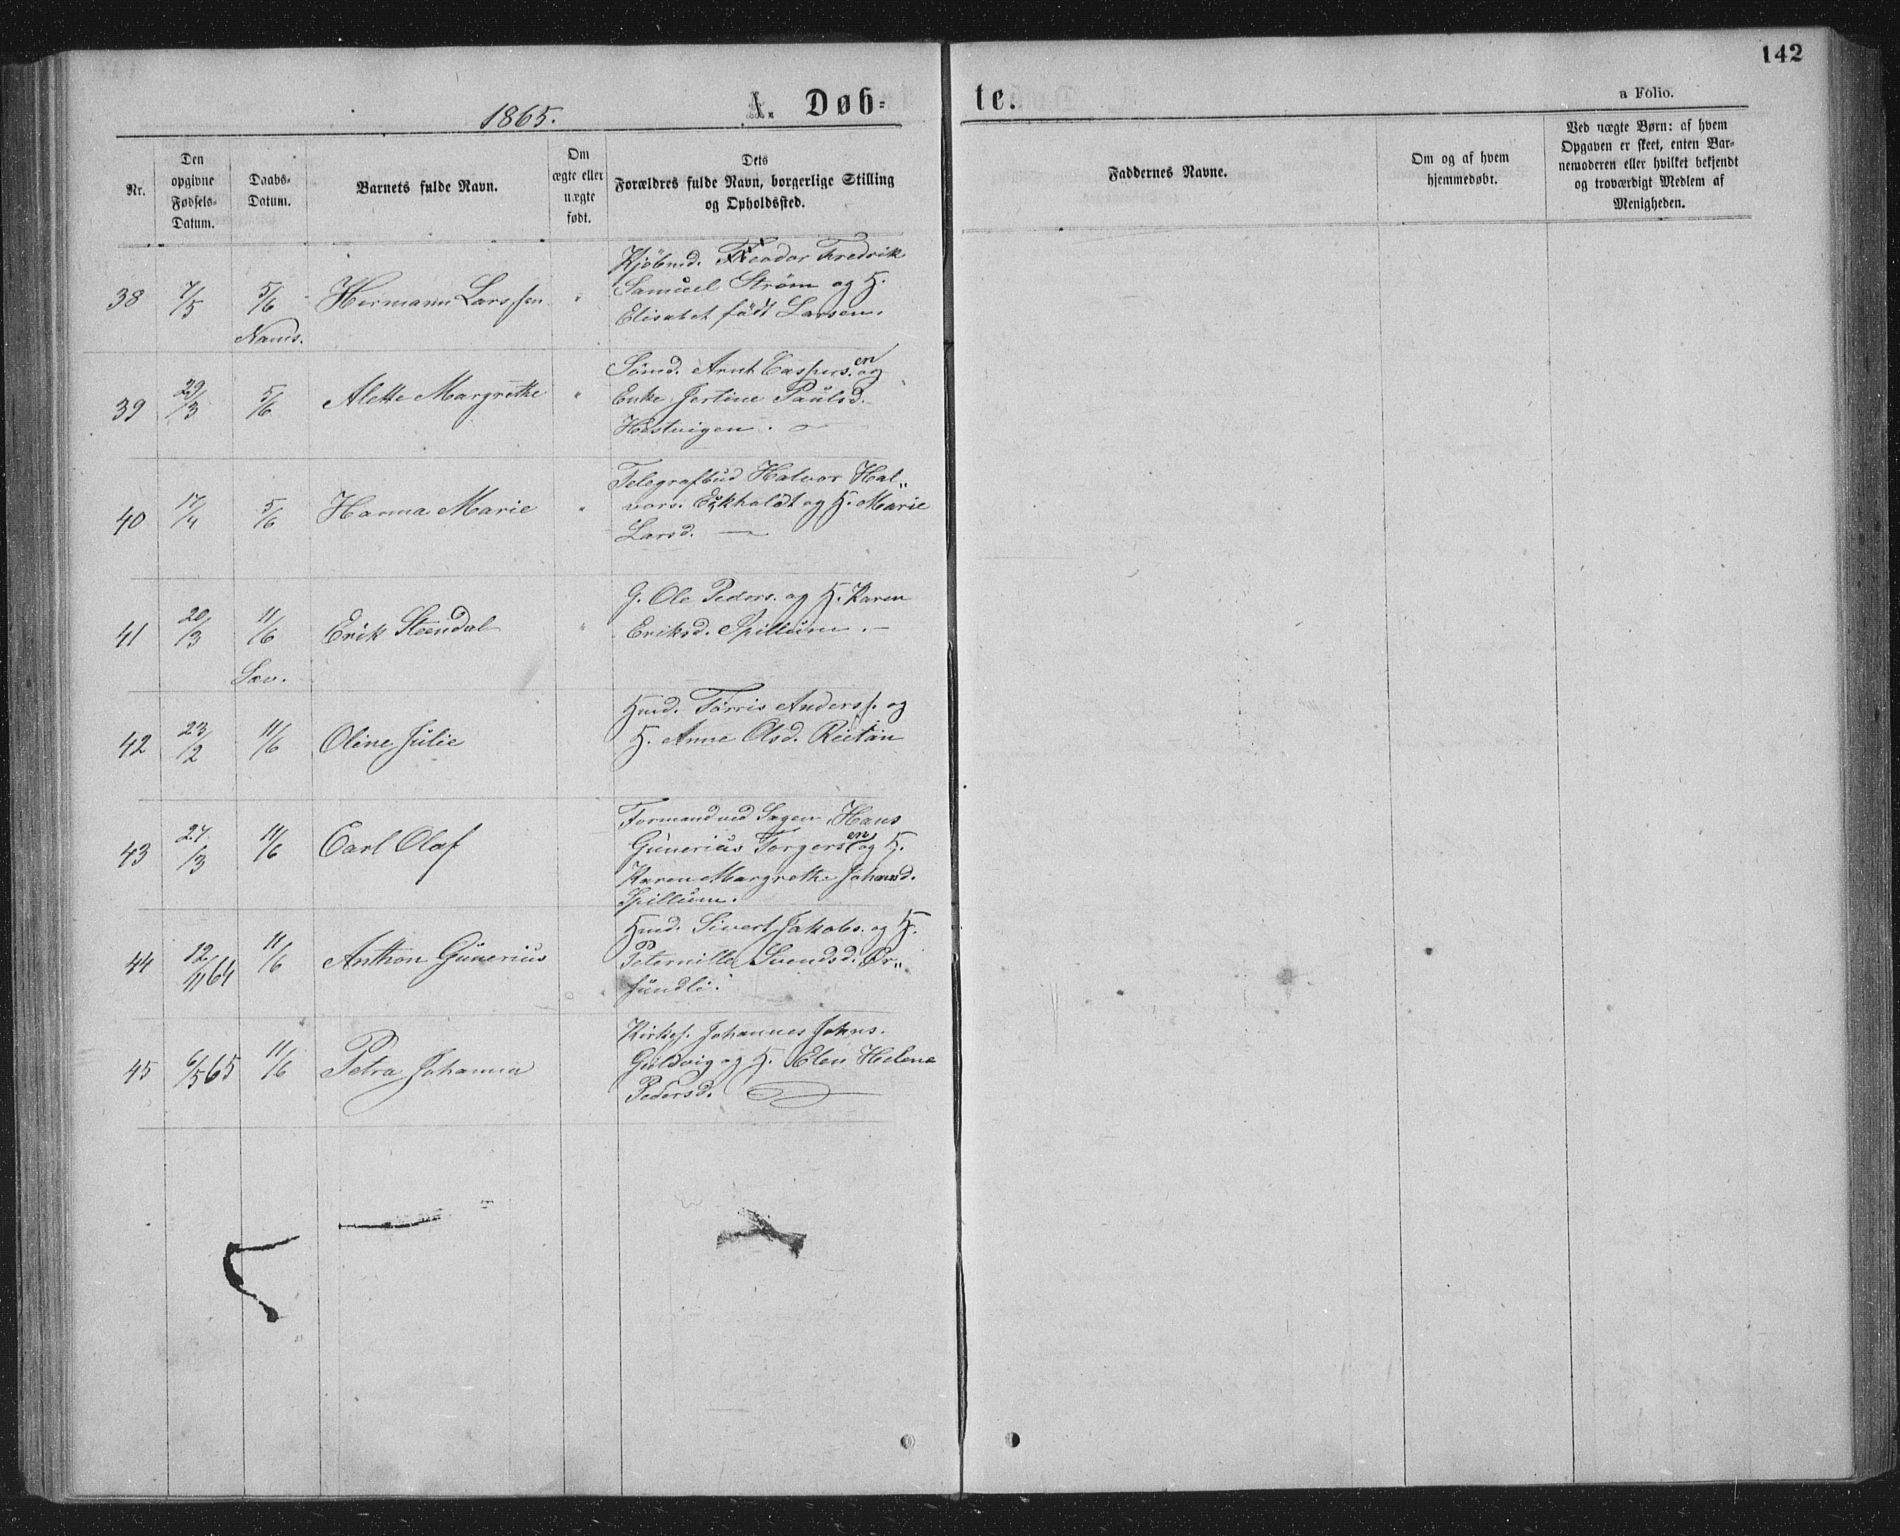 142
1865.
A. Døb-
te.
a Folio.
Nr.
Den
opgivne
Fødsels-
Datum.
Daabs-
Datum.
Barnets fulde Navn.
Om
ægte eller
uægte
født.
Dets
Forældres fulde Navn, borgerlige Stilling
og Opholdssted.
Faddernes Navne.
Om og af hvem
hjemmedøbt.
Ved uægte Børn: af hvem
Opgaven er skeet, enten Bar-
nemoderen eller hvilket bekjendt
og troværdigt Medlem af
Menigheden.
38 7/5 5/6 Hermann Larssen "
Nams.
Kjöbmd. Theodor Fredrik
Samuel Strøm og H.
Elisabet født Larsen.
39 29/3 5/6 Alette Margrethe "
Sömd. Arnt Caspers.en og
Enke Jertine Paulsd.
Hestvigen.
40 17/4 5/6 Hanna Marie "
Telegrafbud Halvor Hal„
vors. Eckholdt og H. Marie
Larsd.
41 20/3 11/6 Erik Steendal "
Sæv.
G. Ole Peders. og H. Karen
Eriksd. Spillum.
42 23/2 11/6 Oline Julie
Hmd. Torris Anderss. og
H. Anne Olsd. Reitan
43 27/3 11/6 Carl Olaf
Formand ved Sagen Hans
Gunerius Torgersen og H.
Karen Margrethe Johansd.
Spillum.
44 12/11 64 11/6 Anthon Gunerius
Hmd. Sivert Jakobs. og H.
Peternille Svendsd. Ør„
sundli.
45 6/5 65 11/6 Petra Johanna
Kirkes. Johannes Johns.
Guldvig og H. Elen Helene
Pedersd.